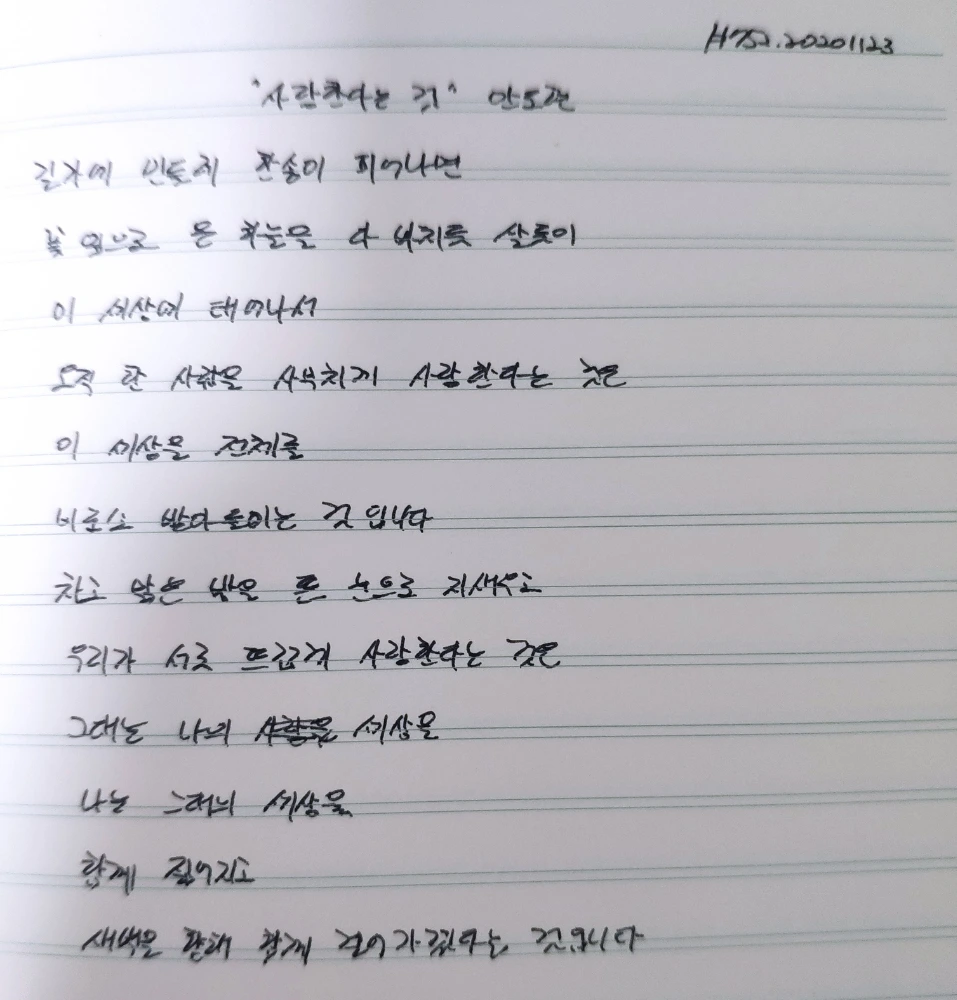 H752.20201123
"사랑한다는 것" 안도현
길가에 민들레 한송이 피어나면
꽃 잎으로 온 하늘을 다 바치듯 살듯이
이 세상에 태어나서
오직 한 사람을 사무치게 사랑한다는 것은
이 세상을 전체를
비로소 받아들이는 것 입니다
차고 맑은 밤을 뜬 눈으로 지새우고
우리가 서로 뜨겁게 사랑한다는 것은
그대는 나의 세상을
나는 그대의 세상을
함께 짊어지고
새벽을 향해 함께 걸어가겠다는 것입니다